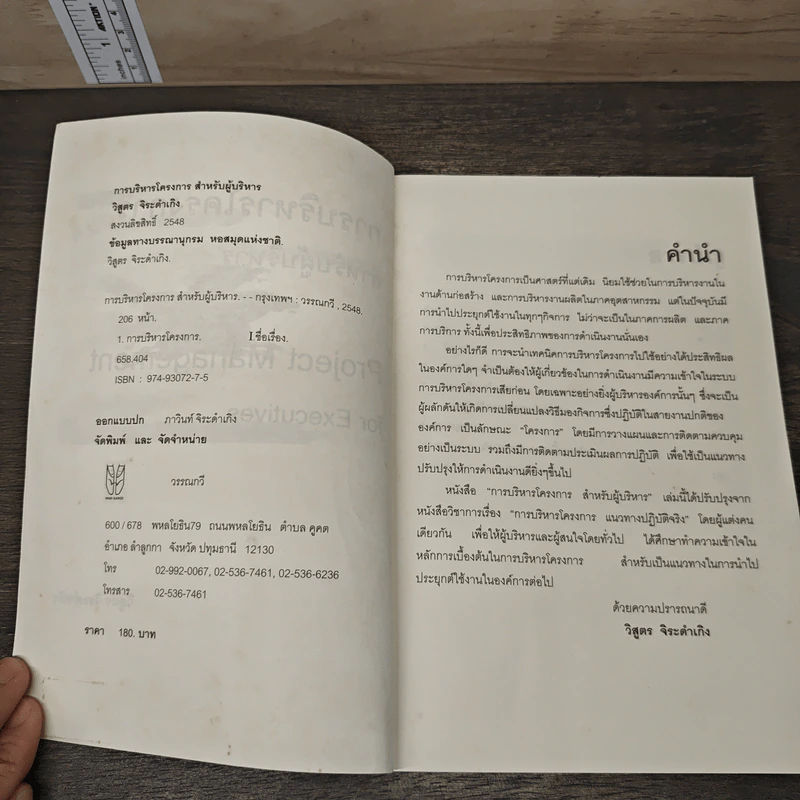 การบริหารโครงการ สำหรับผู้บริหาร
วิสูตร จิระดำเกิง
สงวนลิขสิทธิ์ 2548
ข้อมูลทางบรรณานุกรม หอสมุดแห่งชาติ.
วิสูตร จิระดำเกิง.
การบริหารโครงการ สำหรับผู้บริหาร. - - กรุงเทพฯ : วรรณกวี , 2548.
206 หน้า.
1. การบริหารโครงการ. I.ชื่อเรื่อง.
658.404
ISBN : 974-93072-7-5
ออกแบบปก ภาวินท์ จิระดำเกิง
จัดพิมพ์ และ จัดจำหน่าย
วรรณกวี
600 / 678 พหลโยธิน79 ถนนพหลโยธิน ตำบล คูคต
อำเภอ ลำลูกกา จังหวัด ปทุมธานี 12130
โทร 02-992-0067, 02-536-7461, 02-536-6236
โทรสาร 02-536-7461
ราคา 180. บาท
คำนำ
การบริหารโครงการเป็นศาสตร์ที่แต่เดิม นิยมใช้ช่วยในการบริหารงานใน
งานด้านก่อสร้าง และการบริหารงานผลิตในภาคอุตสาหกรรม แต่ในปัจจุบันมี
การนำไปประยุกต์ใช้งานในทุกๆกิจการ ไม่ว่าจะเป็นในภาคการผลิต และภาค
การบริการ ทั้งนี้เพื่อประสิทธิภาพของการดำเนินงานนั่นเอง
อย่างไรก็ดี การจะนำเทคนิคการบริหารโครงการไปใช้อย่างได้ประสิทธิผล
ในองค์การใดๆ จำเป็นต้องให้ผู้เกี่ยวข้องในการดำเนินงานมีความเข้าใจในระบบ
การบริหารโครงการเสียก่อน โดยเฉพาะอย่างยิ่งผู้บริหารองค์การนั้นๆ ซึ่งจะเป็น
ผู้ผลักดันให้เกิดการเปลี่ยนแปลงวิธีมองกิจการซึ่งปฏิบัติในสายงานปกติของ
องค์การ เป็นลักษณะ "โครงการ" โดยมีการวางแผนและการติดตามควบคุม
อย่างเป็นระบบ รวมถึงมีการติดตามประเมินผลการปฏิบัติ เพื่อใช้เป็นแนวทาง
ปรับปรุงให้การดำเนินงานดียิ่งๆขึ้นไป
หนังสือ "การบริหารโครงการ สำหรับผู้บริหาร" เล่มนี้ได้ปรับปรุงจาก
หนังสือวิชาการเรื่อง "การบริหารโครงการ แนวทางปฏิบัติจริง" โดยผู้แต่งคน
เดียวกัน เพื่อให้ผู้บริหารและผู้สนใจโดยทั่วไป ได้ศึกษาทำความเข้าใจใน
หลักการเบื้องต้นในการบริหารโครงการ สำหรับเป็นแนวทางในการนำไป
ประยุกต์ใช้งานในองค์การต่อไป
ด้วยความปรารถนาดี
วิสูตร จิระดำเกิง